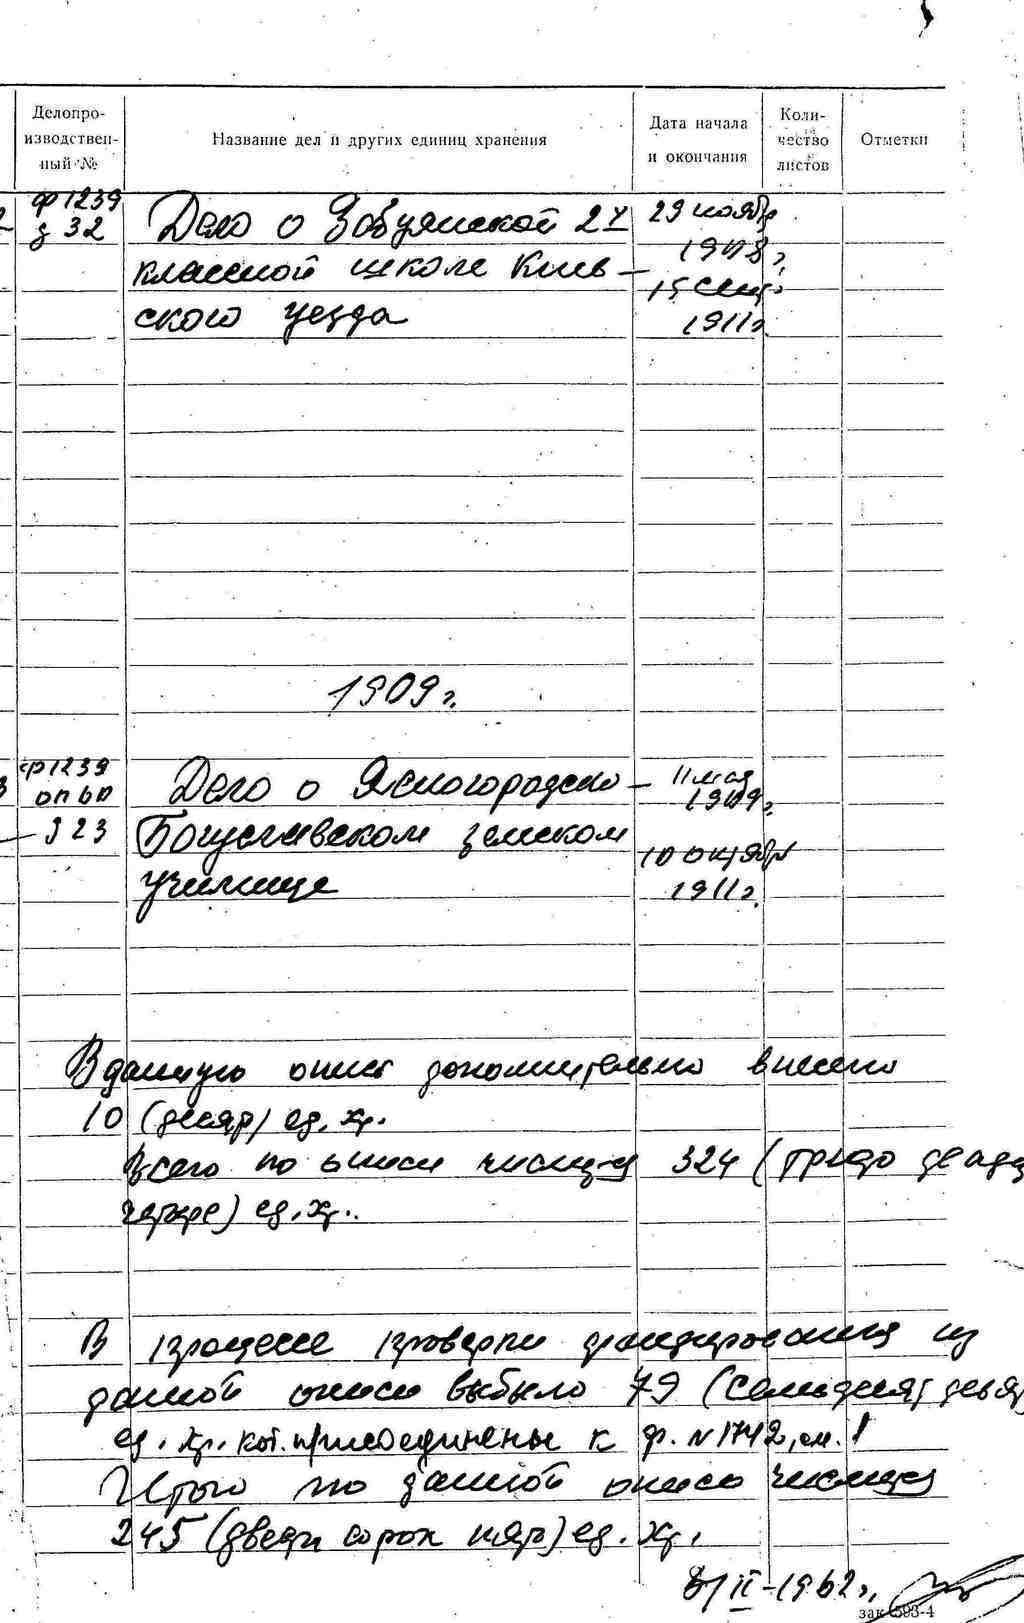 Делопро-
изводствен-
ный №
Название дел и других единиц хранения
Дата начала
и окончания
Коли-
чество
листов
Отметки
ф 1239
д 32
Дело о Забуянской 2х
классной школе Киев-
ского уезда
29 ноябр
1908 г.
15 сент.
1911г
1909 г.
ф 1239
оп 60
д 23
Дело о Ясногородско-
Богуславском земском
училище
11 мая
1909 г.
10 октябр
1911 г.
В данную опись дополнительно внесено
10 (десять) ед. хр.
Всего по описи числится 324 (триста двадц
четыре) ед. хр.
В процессе проверки фондирования из
данной описи выбыло 79 (семьдесят девять
ед. хр. кот. присоединены к ф. № 1742, оп. 1
Итого по данной описи числится
245 (двести сорок пять) ед. хр.
II-1962 г.
зак 593-4